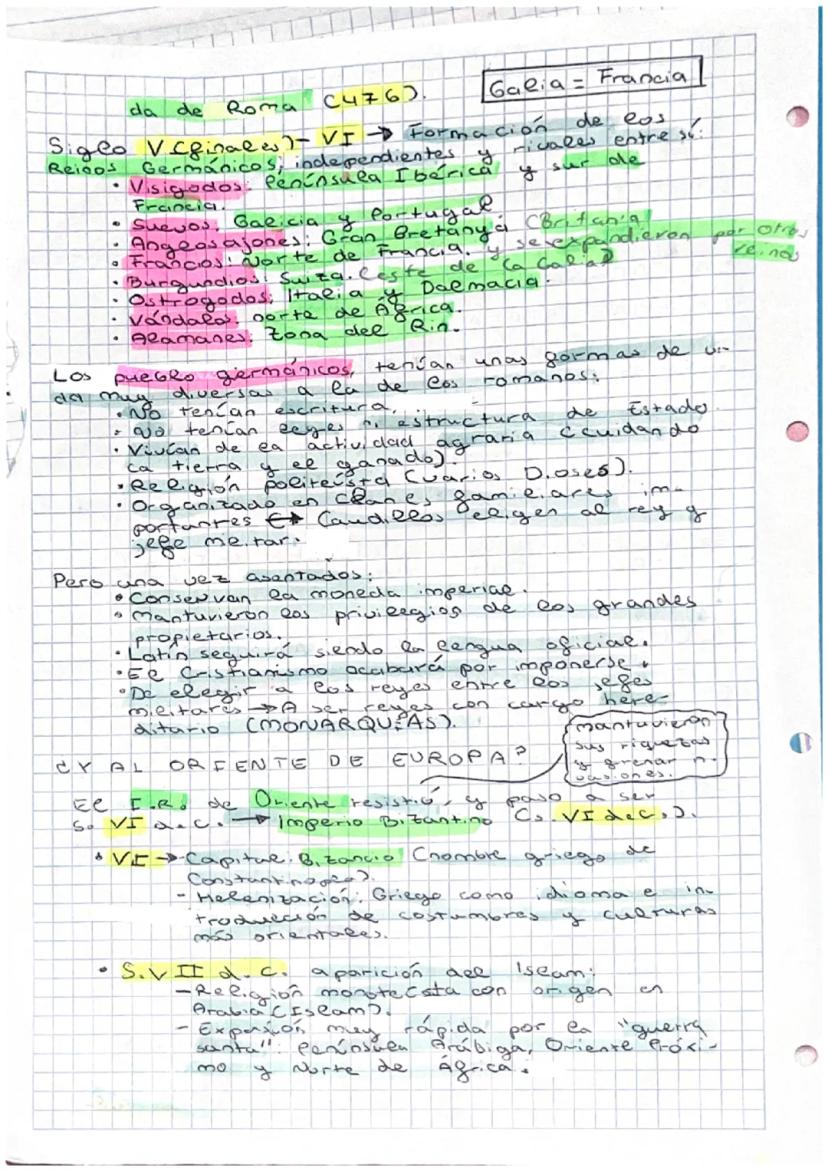 Galia = Francia
da de Roma (476).
Siglo V (finales) - VI → Formación de los
Reinos Germánicos; independientes y rivales entre sí:
• Visigodos: Península Ibérica y sur de
Francia.
• Suevos: Galicia y Portugal
• Anglosajones: Gran Bretaña (Britania)
• Francos: Norte de Francia. y se expandieron por otros
reinos
• Burgundios: Suiza. (este de la Galia)
• Ostrogodos: Italia y Dalmacia.
• Vándalos: norte de África.
• Alamanes: zona del Rin.
Los pueblo germánicos, tenían unas formas de vi-
da muy diversas a la de los romanos:
• No tenían escritura.
• No tenían leyes ni estructura de Estado.
• Vivían de la actividad agraria (cuidando
la tierra y el ganado).
• Religión politeísta (varios Dioses).
• Organizado en clanes familiares im-
portantes → Caudillos eligen al rey y
jefe militar.
Pero una vez asentados:
• Conservan la moneda imperial.
• Mantuvieron los privilegios de los grandes
propietarios.
• Latín seguirá siendo la lengua oficial.
• El Cristianismo acabará por imponerse.
• De elegir a los reyes entre los jefes
militares → A ser reyes con cargo here-
ditario (MONARQUÍAS).
mantuvieron
sus riquezas
y frenar in-
vasiones.
¿Y AL ORIENTE DE EUROPA?
El I.R. de Oriente resistió, y paso a ser
S. VI d.C. → Imperio Bizantino (S. VI d.C.).
• VI → Capital: Bizancio (nombre griego de
Constantinopla).
- Helenización: Griego como idioma e in-
troducción de costumbres y culturas
más orientales.
• S. VII d.C. aparición del Islam:
- Religión monoteísta con origen en
Arabia (Islam).
- Expansión muy rápida por la "guerra
santa": Península Arábiga, Oriente Próxi-
mo y Norte de África.